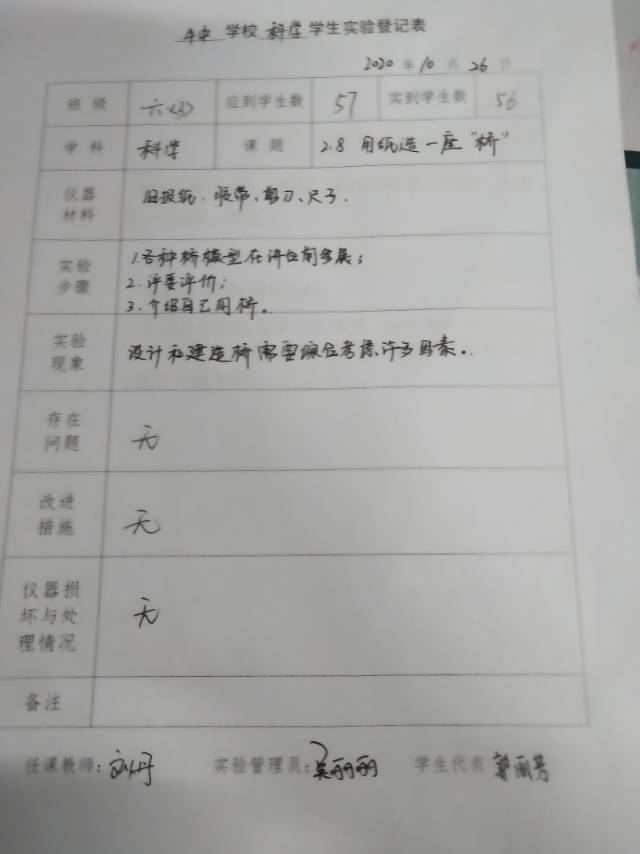 学校 科学 学生实验登记表
2020 年 10 月 26 日
班级 六(3) 应到学生数 57 实到学生数 56
学科 科学 课题 2.8 用纸造一座“桥”
仪器
材料
旧报纸、胶带、剪刀、尺子.
实验
步骤
1.各种桥模型在讲台前参展；
2.评委评价；
3.介绍自己用桥。
实验
现象
设计和建造桥需要综合考虑许多因素。
存在
问题
无
改进
措施
无
仪器损
坏与处
理情况
无
备注
任课教师：刘丹 实验管理员：吴丽丽 学生代表 郭丽芳